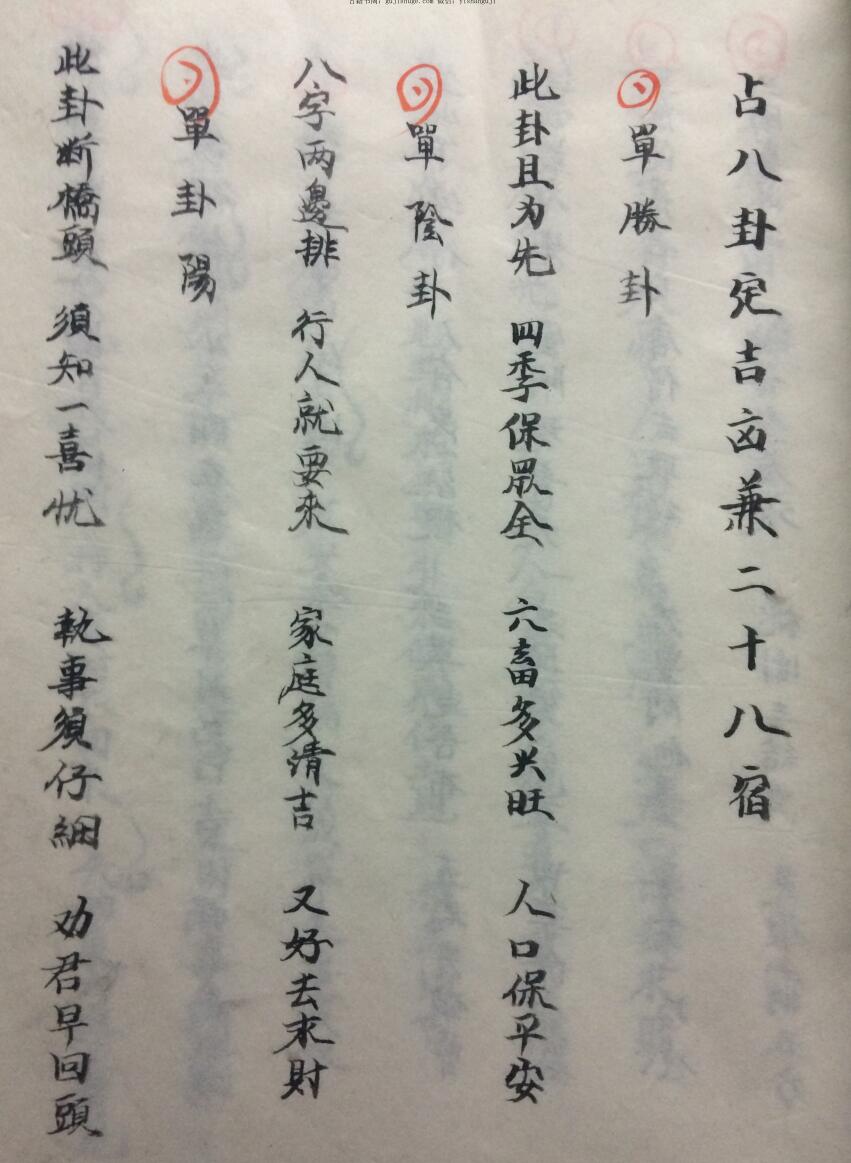 古籍书阁：gujishuge.com 微信：yishanguji
占八卦定吉凶兼二十八宿
單勝卦
此卦且为先 四季保眾全 六畜多兴旺 人口保平安
單陰卦
八字两邊排 行人就要來 家庭多清吉 又好去求財
單卦陽
此卦断橋頭 須知一喜忧 執事須仔細 劝君早回頭